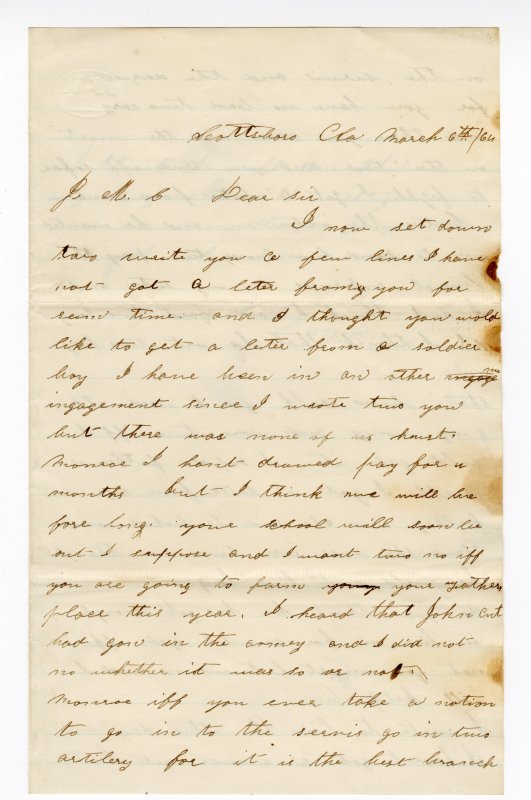 Scottsboro Ala March 6th/64
J. M. C Dear sir
I now set down
two write you a few lines I have
not got a leter from you for
sum time. and I thought you wold
like to get a leter from a soldier
boy I have been in an other
ingagement since I wrote two you
but there was none of us hurt.
Monroe I hant drawed pay for 4
months but I think we will be
fore long. your school will soon be
out I suppose and I want two no iff
you are going to farm your fathers
place this year. I heard that John
had gon in the armey and I did not
no whether it was so or not.
Monroe iff you ever take a notion
to go in to the servis go in two
artilery for it is the best branch